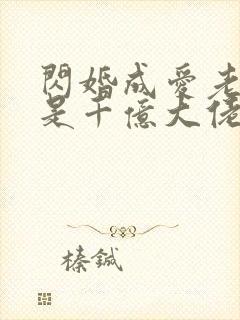 閃婚成愛老
是千億大佬
榛鍼